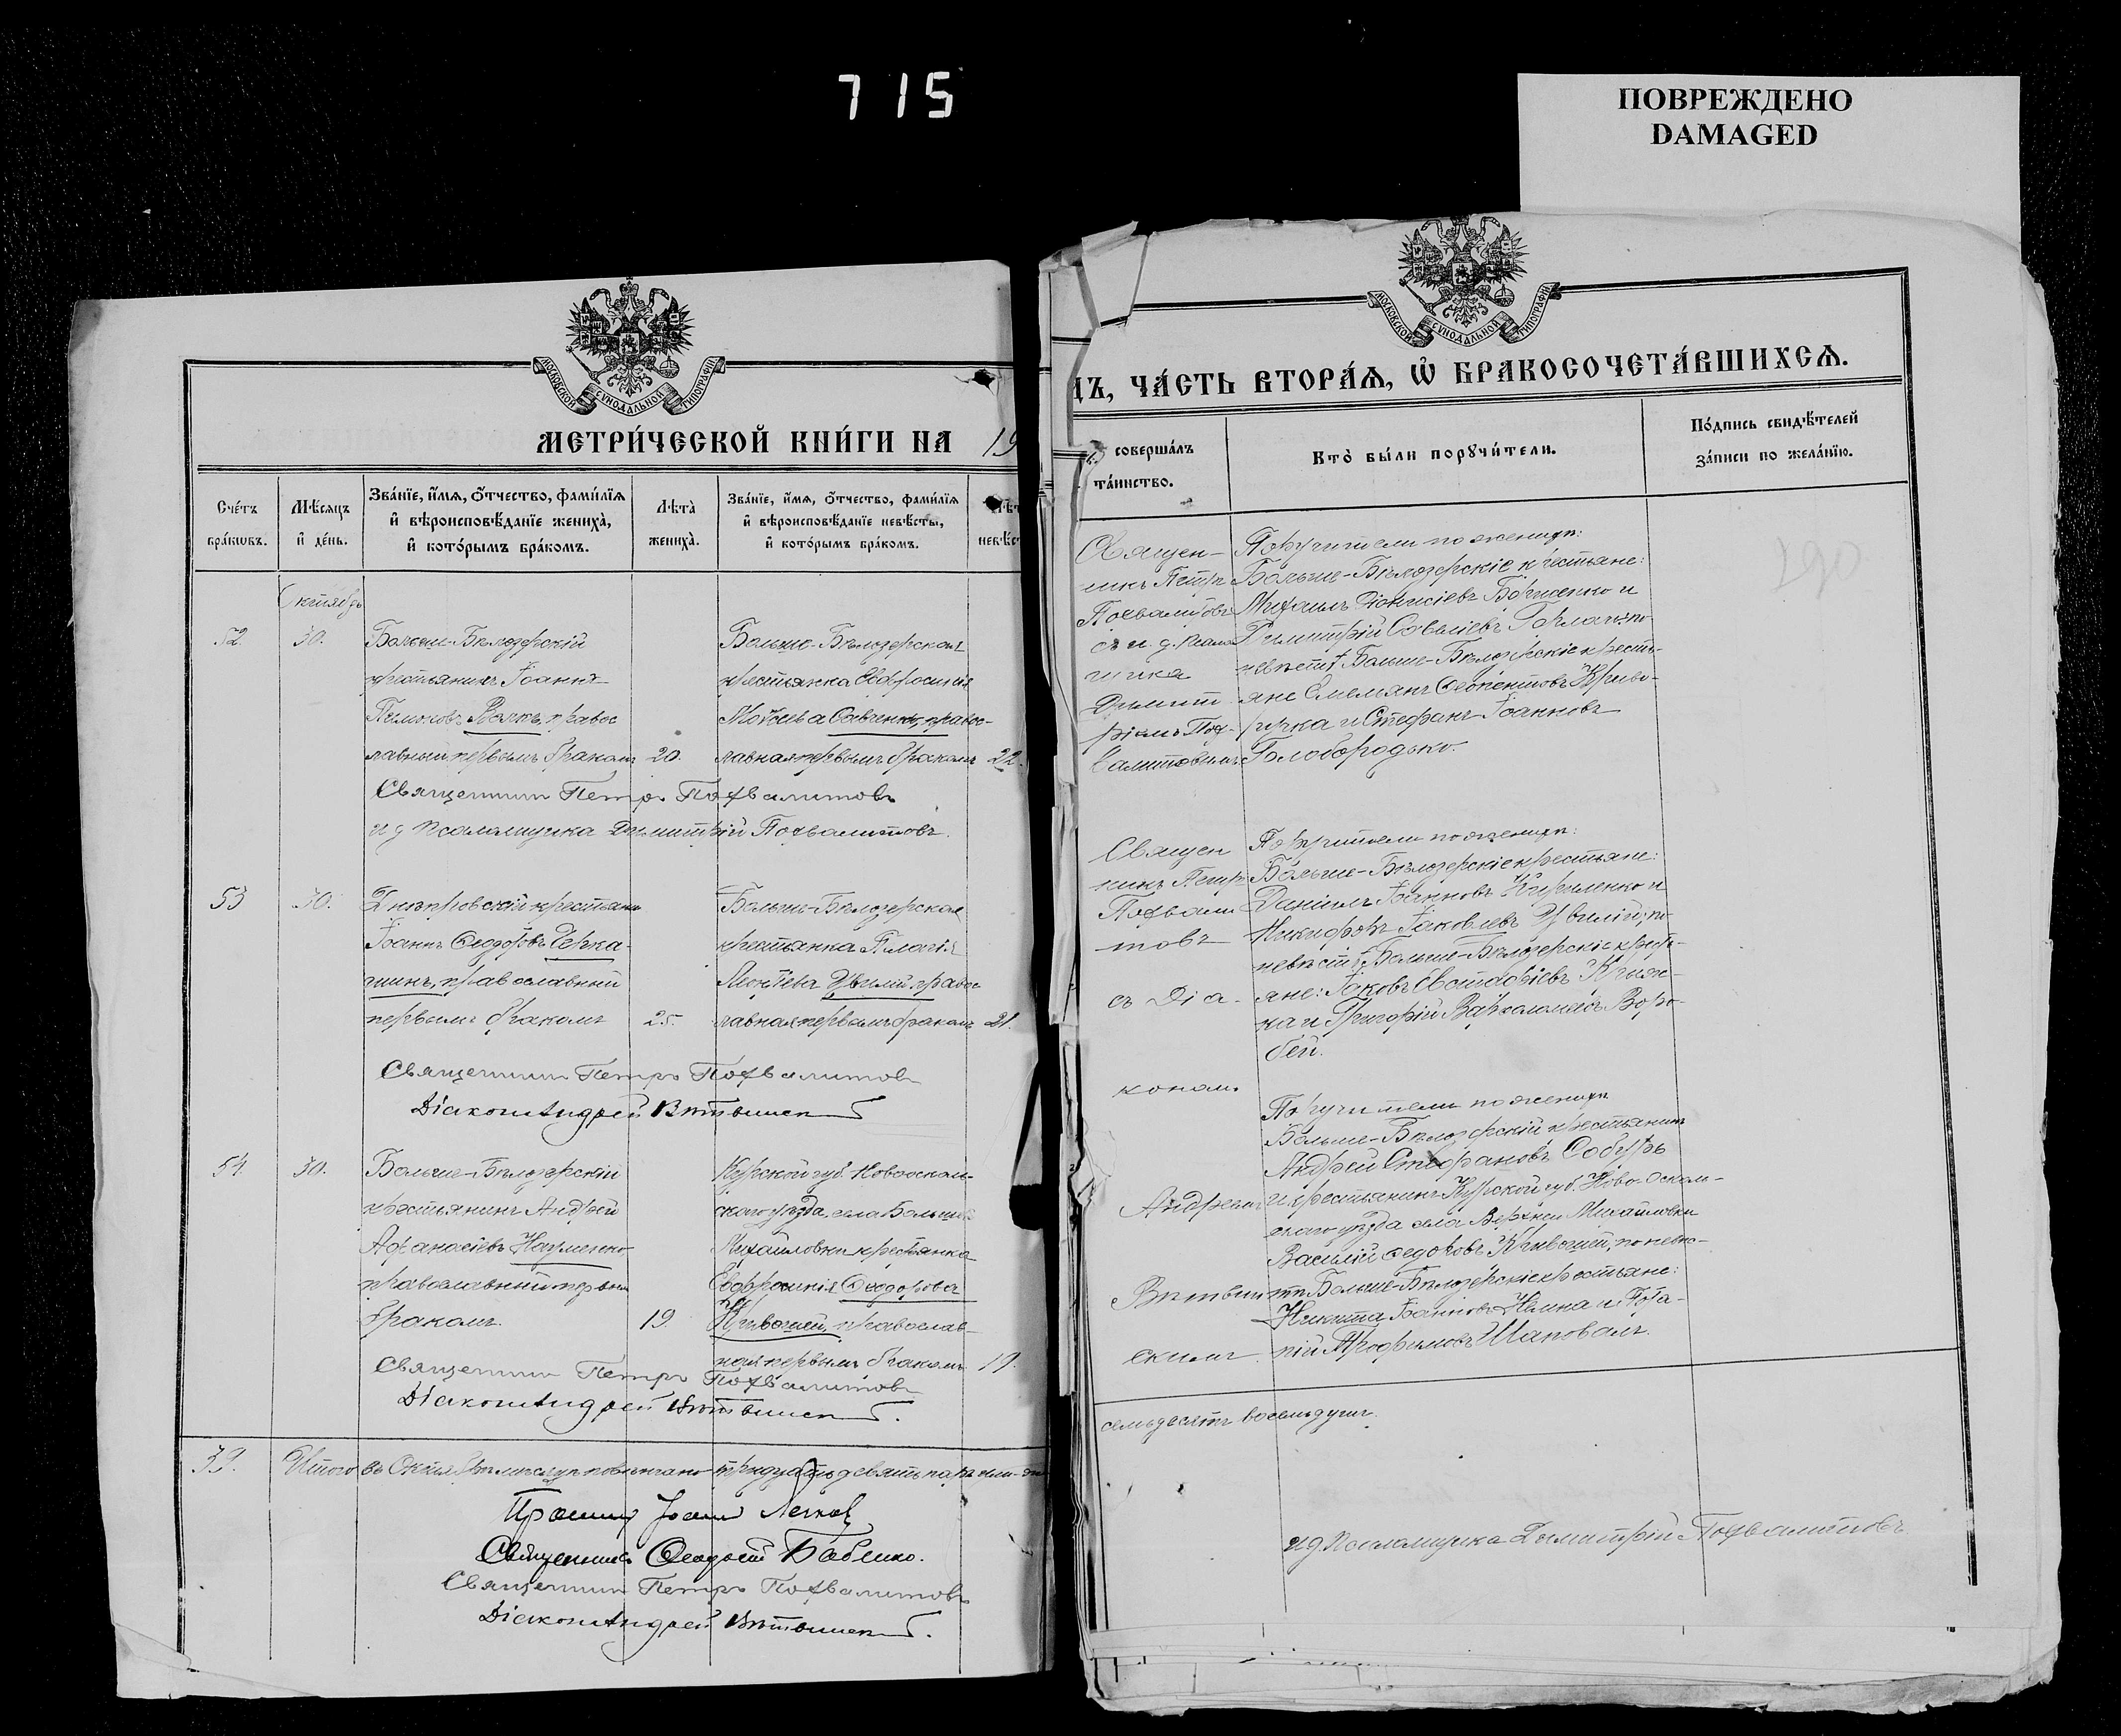 715
ПОВРЕЖДЕНО
DAMAGED
МОСКОВСКОЙ СѴНОДАЛЬНОЙ ТИПОГРАФІИ
МЕТРИ́ЧЕСКОЙ КНИ́ГИ НА 19
Сче́тъ бра́кωвъ.
Мѣ́сяцъ и҆ де́нь.
Зва́нїе, и҆́мѧ, ѻ҆́тчество, фами́лїѧ
и҆ вѣроисповѣ́данїе женихà,
и҆ кото́рымъ бра́комъ.
Лѣтà женихà.
Зва́нїе, и҆́мѧ, ѻ҆́тчество, фами́лїѧ
и҆ вѣроисповѣ́данїе невѣ́сты,
и҆ кото́рымъ бра́комъ.
Октябрь
52. 30.
Больше-Бѣлозерскій
крестьянинъ Іоаннъ
Пимоновъ Вачкъ, правос
лавный первымъ бракомъ 20.
Больше-Бѣлозерская
крестьянка Евфросинія
Мойсеева Савченко, правос-
лавная первымъ бракомъ 22.
Священникъ Петръ Похвалитовъ
и д псаломщика Димитрій Похвалитовъ.
53 30.
Днѣпровскій крестьянинъ
Іоаннъ Ѳеодоровъ Черка-
шинъ, православный
первымъ бракомъ 25.
Больше-Бѣлозерская
крестьянка Пелагія
Леонтіева Цвилій, правос
лавная первымъ бракомъ 21.
Священникъ Петръ Похвалитовъ
Діаконъ Андрей Витвинск
54. 30.
Больше-Бѣлозерскій
крестьянинъ Андрей
Аѳанасіевъ Науменко
православный первымъ
бракомъ. 19.
Курской губ. Новооскаль-
скаго уѣзда, села Большой
Михайловки крестьянка
Евфросинія Ѳеодорова
Кривошей, православ-
ная первымъ бракомъ 19.
Священникъ Петръ Похвалитовъ
Діаконъ Андрей Витвинск
39. Итого въ Октябрѣ мѣсяцѣ повѣнчано тридцать девять паръ или
Іоаннъ
Священникъ Ѳеодосій Бабенко.
Священникъ Петръ Похвалитовъ
Діаконъ Андрей Витвинск
МОСКОВСКОЙ СѴНОДАЛЬНОЙ ТИПОГРАФІИ
ДЪ, ЧА́СТЬ ВТОРА́Ѧ, Ѡ҆ БРАКОСОЧЕТА́ВШИХСѦ.
соверша́лъ
та́инство.
Кто̀ бы́ли порꙋчи́тели.
По́дпись свидѣ́телей
за́писи по жела́нїю.
190
Священ-
никъ Петръ
Похвалитовъ
съ и. д. псалом
щика
Димит
ріемъ Пох-
валитовымъ
Поручители по женихѣ:
Больше-Бѣлозерскіе крестьяне:
Михаилъ Діонисіевъ Борисенко и
Димитрій Савеліевъ по
невѣстѣ Больше-Бѣлозерскіе кресть-
яне Емельянъ Ѳеопентовъ Криво-
ручка и Стефанъ Іоанновъ
Голобородько.
Священ
никъ Петръ
Похвали
товъ
съ Діа-
кономъ
Андреемъ
Витвин
скимъ
Поручители по женихѣ:
Больше-Бѣлозерскіе крестьяне:
Даніилъ Іоанновъ Кириленко и
Никифоръ Іаковлевъ Цвилій; по
невѣстѣ Больше-Бѣлозерскіе кресть-
яне: Іаковъ Евстафіевъ
ка и Григорій Варѳоломеевъ Воро-
бей.
Поручители по женихѣ
Больше-Бѣлозерскій крестьянинъ
Андрей Стефановъ Собуръ
и крестьянинъ Курской губ. Ново-Оскол-
скаго уѣзда села Верхней Михайловки
Василій Ѳедоровъ Кривошей; по невѣс-
тѣ Больше-Бѣлозерскіе крестьяне:
Никита Іоанновъ и Пота-
пій Трофимовъ Шаповалъ.
семьдесятъ восемь душъ.
и д. Псаломщика Димитрій Похвалитовъ